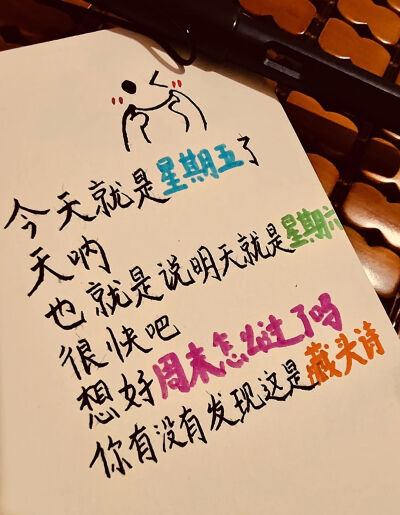 今天就是星期五了
天呐
也就是说明天就是星期六
很快吧
想好周末怎么过了吗
你有没有发现这是藏头诗